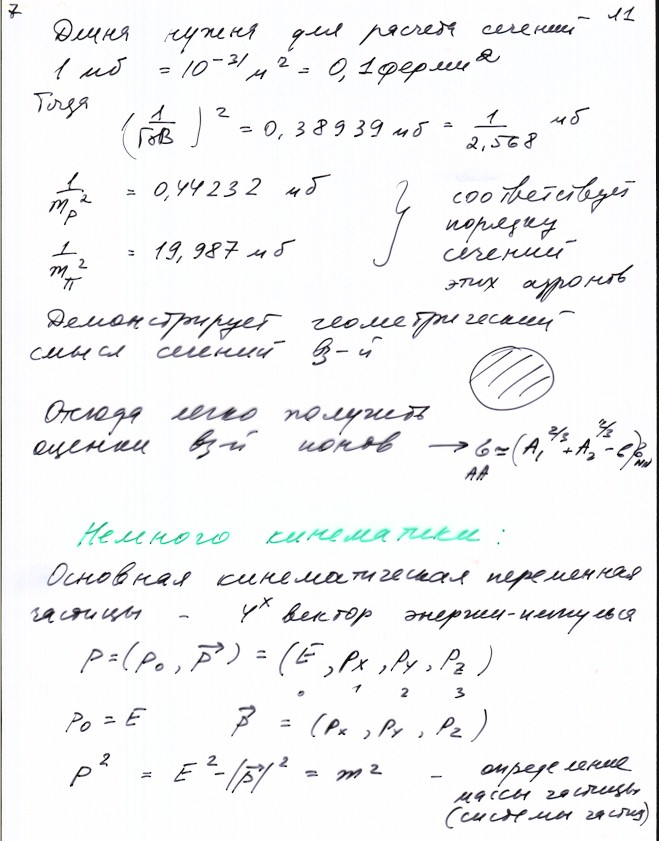 7
Л1
Длина нужна для расчета сечений
1 мб = 10⁻³¹ м² = 0,1 ферми²
Тогда
(1/ГэВ)² = 0,38939 мб = 1/2,568 мб
1/m_p² = 0,44232 мб } соответствует
порядку
1/m_π² = 19,987 мб сечений
этих адронов
Демонстрирует геометрический
смысл сечений вз-й
Отсюда легко получить
оценки вз-й ионов → σ_AA ≃ (A₁^2/3 + A₂^2/3 - ℓ)σ_NN
Немного кинематики:
Основная кинематическая переменная
частицы - 4х вектор энергии-импульса
P = (P₀, p⃗) = (E, Px, Py, Pz)
0 1 2 3
P₀ = E p⃗ = (Px, Py, Pz)
P² = E² - |p⃗|² = m² - определение
массы частицы
(системы частиц)